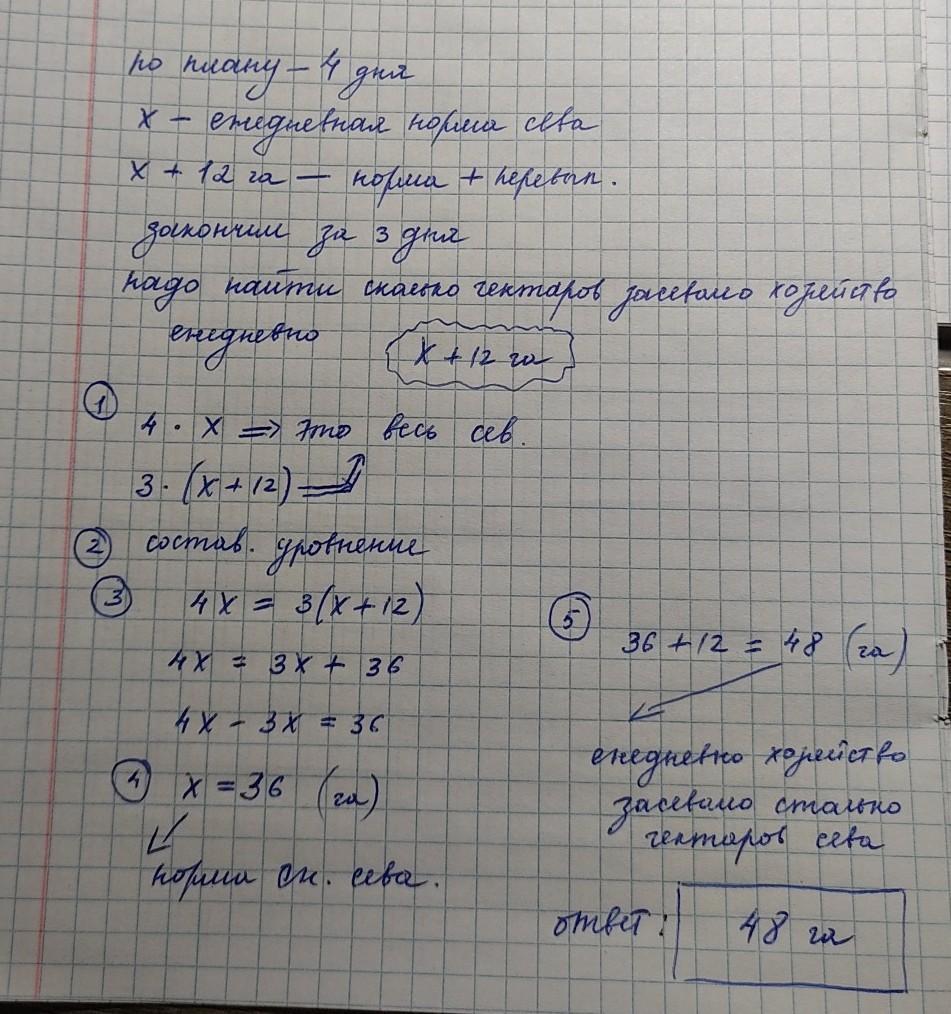 по плану – 4 дня
x – ежедневная норма сева
x + 12 га — норма + перевып.
закончим за 3 дня
надо найти сколько гектаров засевало хозяйство
ежедневно x + 12 га
1
4 · x => это весь сев.
3 · (x + 12) =>
2 состав. уровнение
3 4x = 3(x + 12)
4x = 3x + 36
4x - 3x = 36
4 x = 36 (га)
норма еж. сева.
5
36 + 12 = 48 (га)
ежедневно хозяйство
засевало столько
гектаров сева
ответ: 48 га